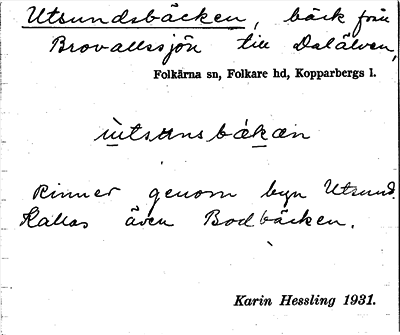 Utsundsbäcken, bäck från
Brovallssjön till Dalälven,
Folkärna sn, Folkare hd, Kopparbergs l.
ùtsunsbákan
Rinner genom byn Utsund.
Kallas även Bodbäcken.
Karin Hessling 1931.